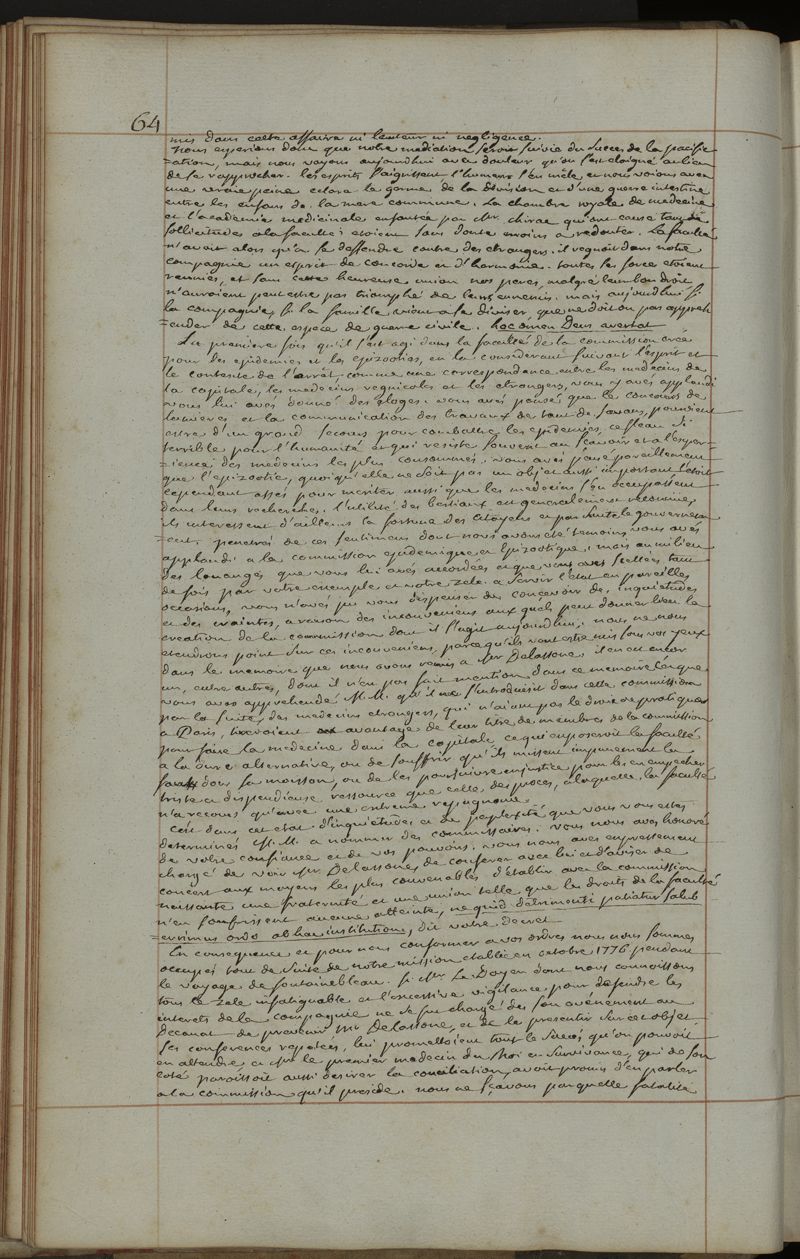 64
mis dans cette affaire ni lenteur ni negligence.
Nous esperions donc que notre mediation seroit suivie du succes de la pacific
=ation, mais nous voyons aujourdhui avec douleur qu'on s'est eloigné au lieu
de se rapprocher. les esprits s'aigrissent l'humeur s'en mêle, et nous voions avec
une peine eclore le germe de la division et d'une guerre intestine
entre les enfans de la mere commune. La chambre royale de medecine
et l'academie medicinale enfantée par Mr. chirac qui ont causé tant de
sollicitudes a la faculté etoient sans doute moins a redouter. La faculté
n'avoit alors qu'a se deffendre contre des etrangers. il regnoit dans notre
compagnie un esprit de concorde et d'harmonie. toutes ses force etoient
reunies, et sans cette heureuse union nos peres, malgré leur bon droit
n'auroient peut etre pas triomphé de leurs ennemis. mais aujourdhui si
la compagnie, si la famille vient a se diviser, que ne doit on pas appreh
=ender de cette espece de guerre civile. hoc omen Deus avertat
La premiere fois qu'il s'est agi dans la faculté de la commission créé
pour les epidemies et les epizooties, en la considerant suivant l'esprit et
le contexte de l'arrêt comme une correspondance entre les medecins de
la capitale, les medecins regnicoles et les etrangers, vous y avés applaudi
vous lui avés donné des eloges. vous avés pensé que le concours de
lumieres et la communication des travaux de tant de savans, pouvoient
estre d'un grand secours pour combattre les epidemies, ce fleau si
terrible pour l'humanité et qui resiste souvent au scavoir et a l'exper
=ience des medecins les plus consommés. vous avés pensé pareillement
que l'epizootie, quoiqu'elle ne soit pas un objet aussi important l'etoit
cependant assés pour meriter aussi que les medecins s'en occupassent
dans leurs recherches. l'utilité des bestiaux est generalement reconnue,
ils interessent d'ailleurs la fortune des citoyens et par suite le gouvernem
=ent. penetrés de ces sentimens dont nous avons été temoins vous avés
applaudi a la commission epidemique et epizootique, mais au milieu
des louanges que vous lui avés accordées et que vous avés scellées tant
de fois par votre exemple et notre zele a servir l'etat en pareilles
occasions, vous n'avés pu vous dispenser de concevoir des inquietudes
et des craintes, a raison des inconveniens aux quels peut donner lieu la
creation de la commission dont il s'agit aujourdhui. nous ne nous
etendrons point sur ces inconveniens, parcequ'ils vont etre mis sous vos yeux
dans le memoire que nous avons remis a Mr Delassone. il en est encor
un, entre autres, dont il n'est pas fait mention dans ce memoire lorsque
vous avés apprehendé M.M. qu'il ne s'introduisit dans cette commission
par la suite, des medecins etrangers, qui n'aiant pas le droit de pratiquer
a Paris, avantage de leur titre de membres de la commission
pour faire la medecine dans la capitale ce qui exposeroit la faculté
a la dure alternative, ou de souffrir qu'ils missent impunement la
faux dans sa moisson, ou de les poursuivre en justice pour les en empecher
triste et dispendieuse ressource que celle des proces, a laquelle la faculté
n'a recours qu'avec une extreme repugnance.
C'est dans cet etat d'inquietudes et de perplexité que vous vous etes
determinés M.M. a nommer des commissaires. vous nous avés honoré
de votre confiance et de vos pouvoirs. vous nous avés expressement
chargé de voir Mr Delassone, de conferer avec lui et d'aviser de
concert aux moyens les plus convenables d'etablir avec la commission
naissante une fraternité et une union telle que les droits de la faculté
n'en souffrissent aucune atteinte, ne quid detrimenti patiatur salub
=errimus ordo ab hac institutione, dit votre decret
En consequence et pour nous conformer a vos ordres nous nous sommes
occupés tout de suite de notre mission etablie en octobre 1776 pendant
le voyage de fontainebleau. si Mr. Le Doyen dont nous connoissons
tous le zele infatigable et l'excessive vigilance pour defendre les
interets de la compagnie ne se fut chargé dès son avenement au
Decanat de prevenir Mr Delassone, et de le pressentir sur cet objet.
ses conferences repetées, lui promettoient tout le succès qu'on pouvoit
en attendre, et Mr le premier medecin du Roi en survivance, qui de son
coté paroissoit aussi desirer la conciliation, avoit promis d'en parler
a la commission qu'il preside. nous ne scavons par quelle fatalité